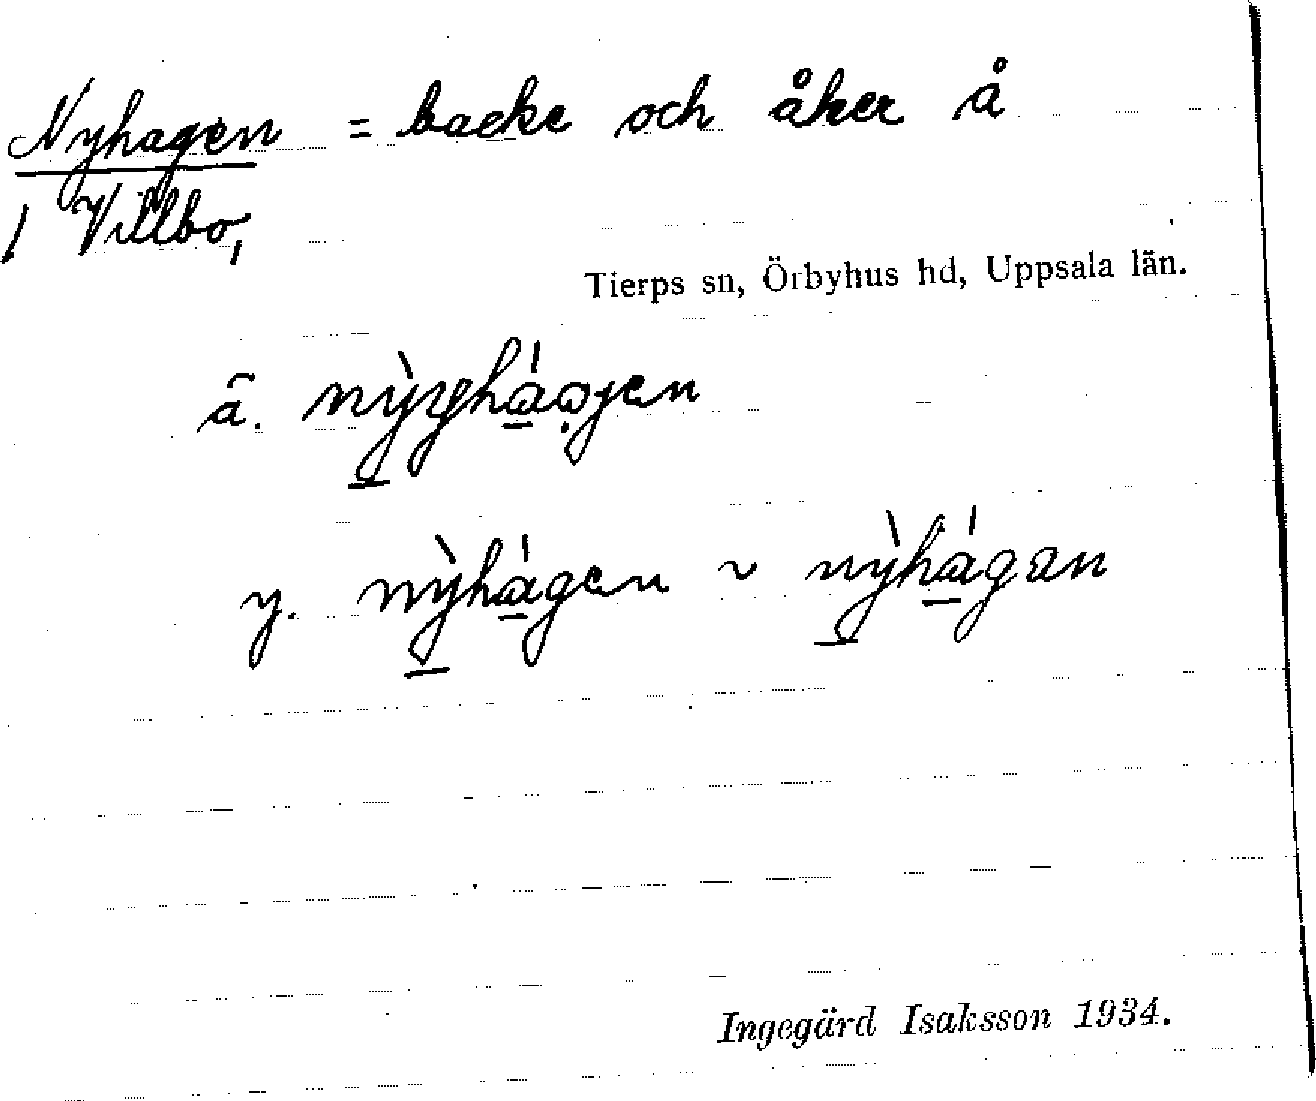 Nyhagen = backe och åker å
/ Villbo,
Tierps sn, Örbyhus hd, Uppsala län.
ä.
y. nỳhágen ~ nỳhágan
Ingegärd Isaksson 1934.